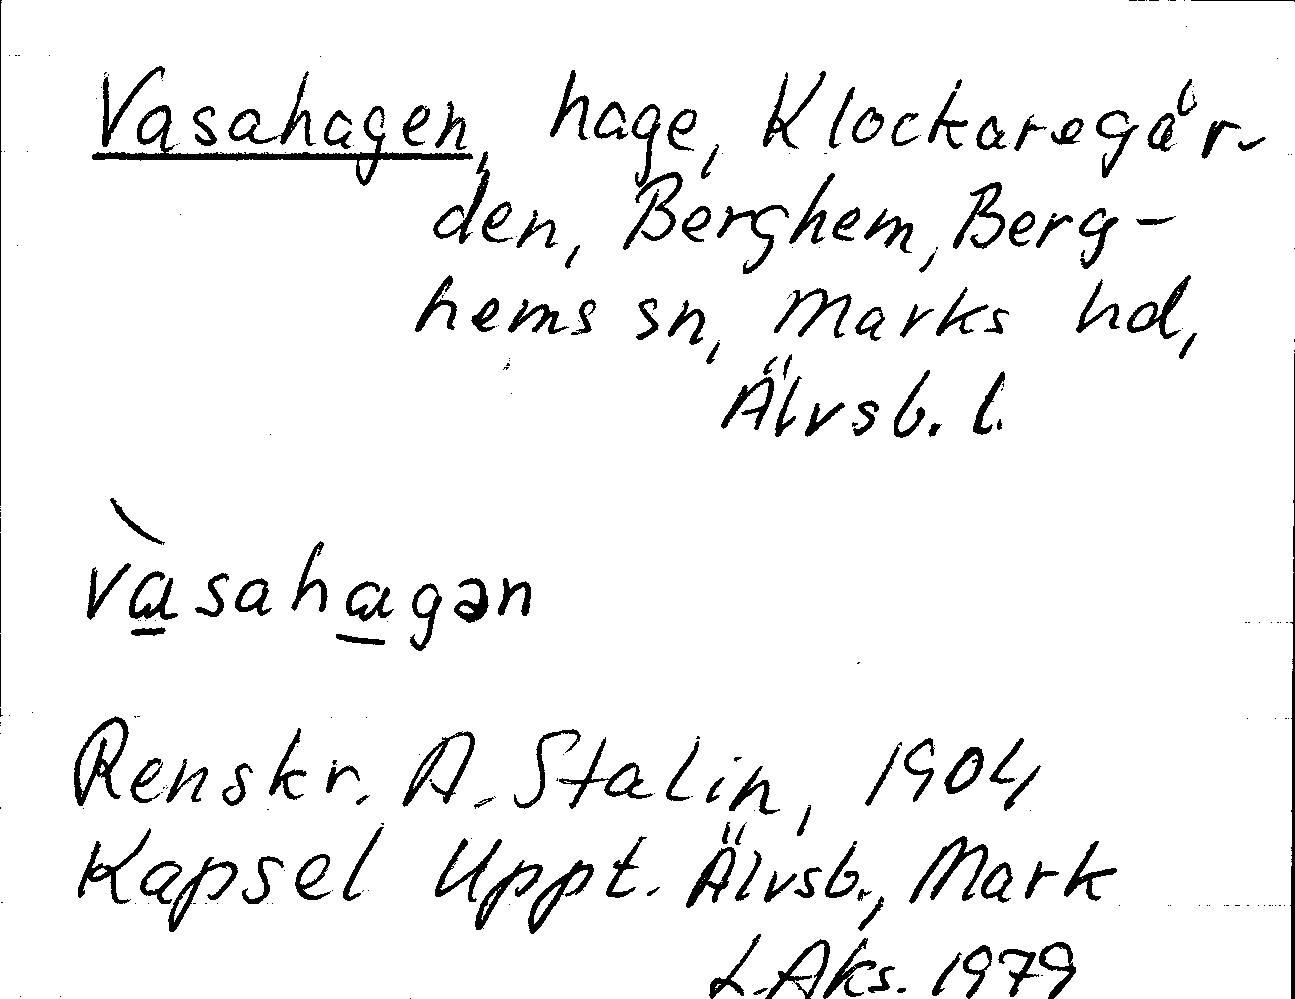 Vasahagen, hage, Klockaregår-
den, Berghem, Berg-
hems sn, Marks hd,
Älvsb. l.
vàsahagən
Renskr. A. Stalin, 1904
Kapsel Uppt. Älvsb., Mark
L.Aks. 1979